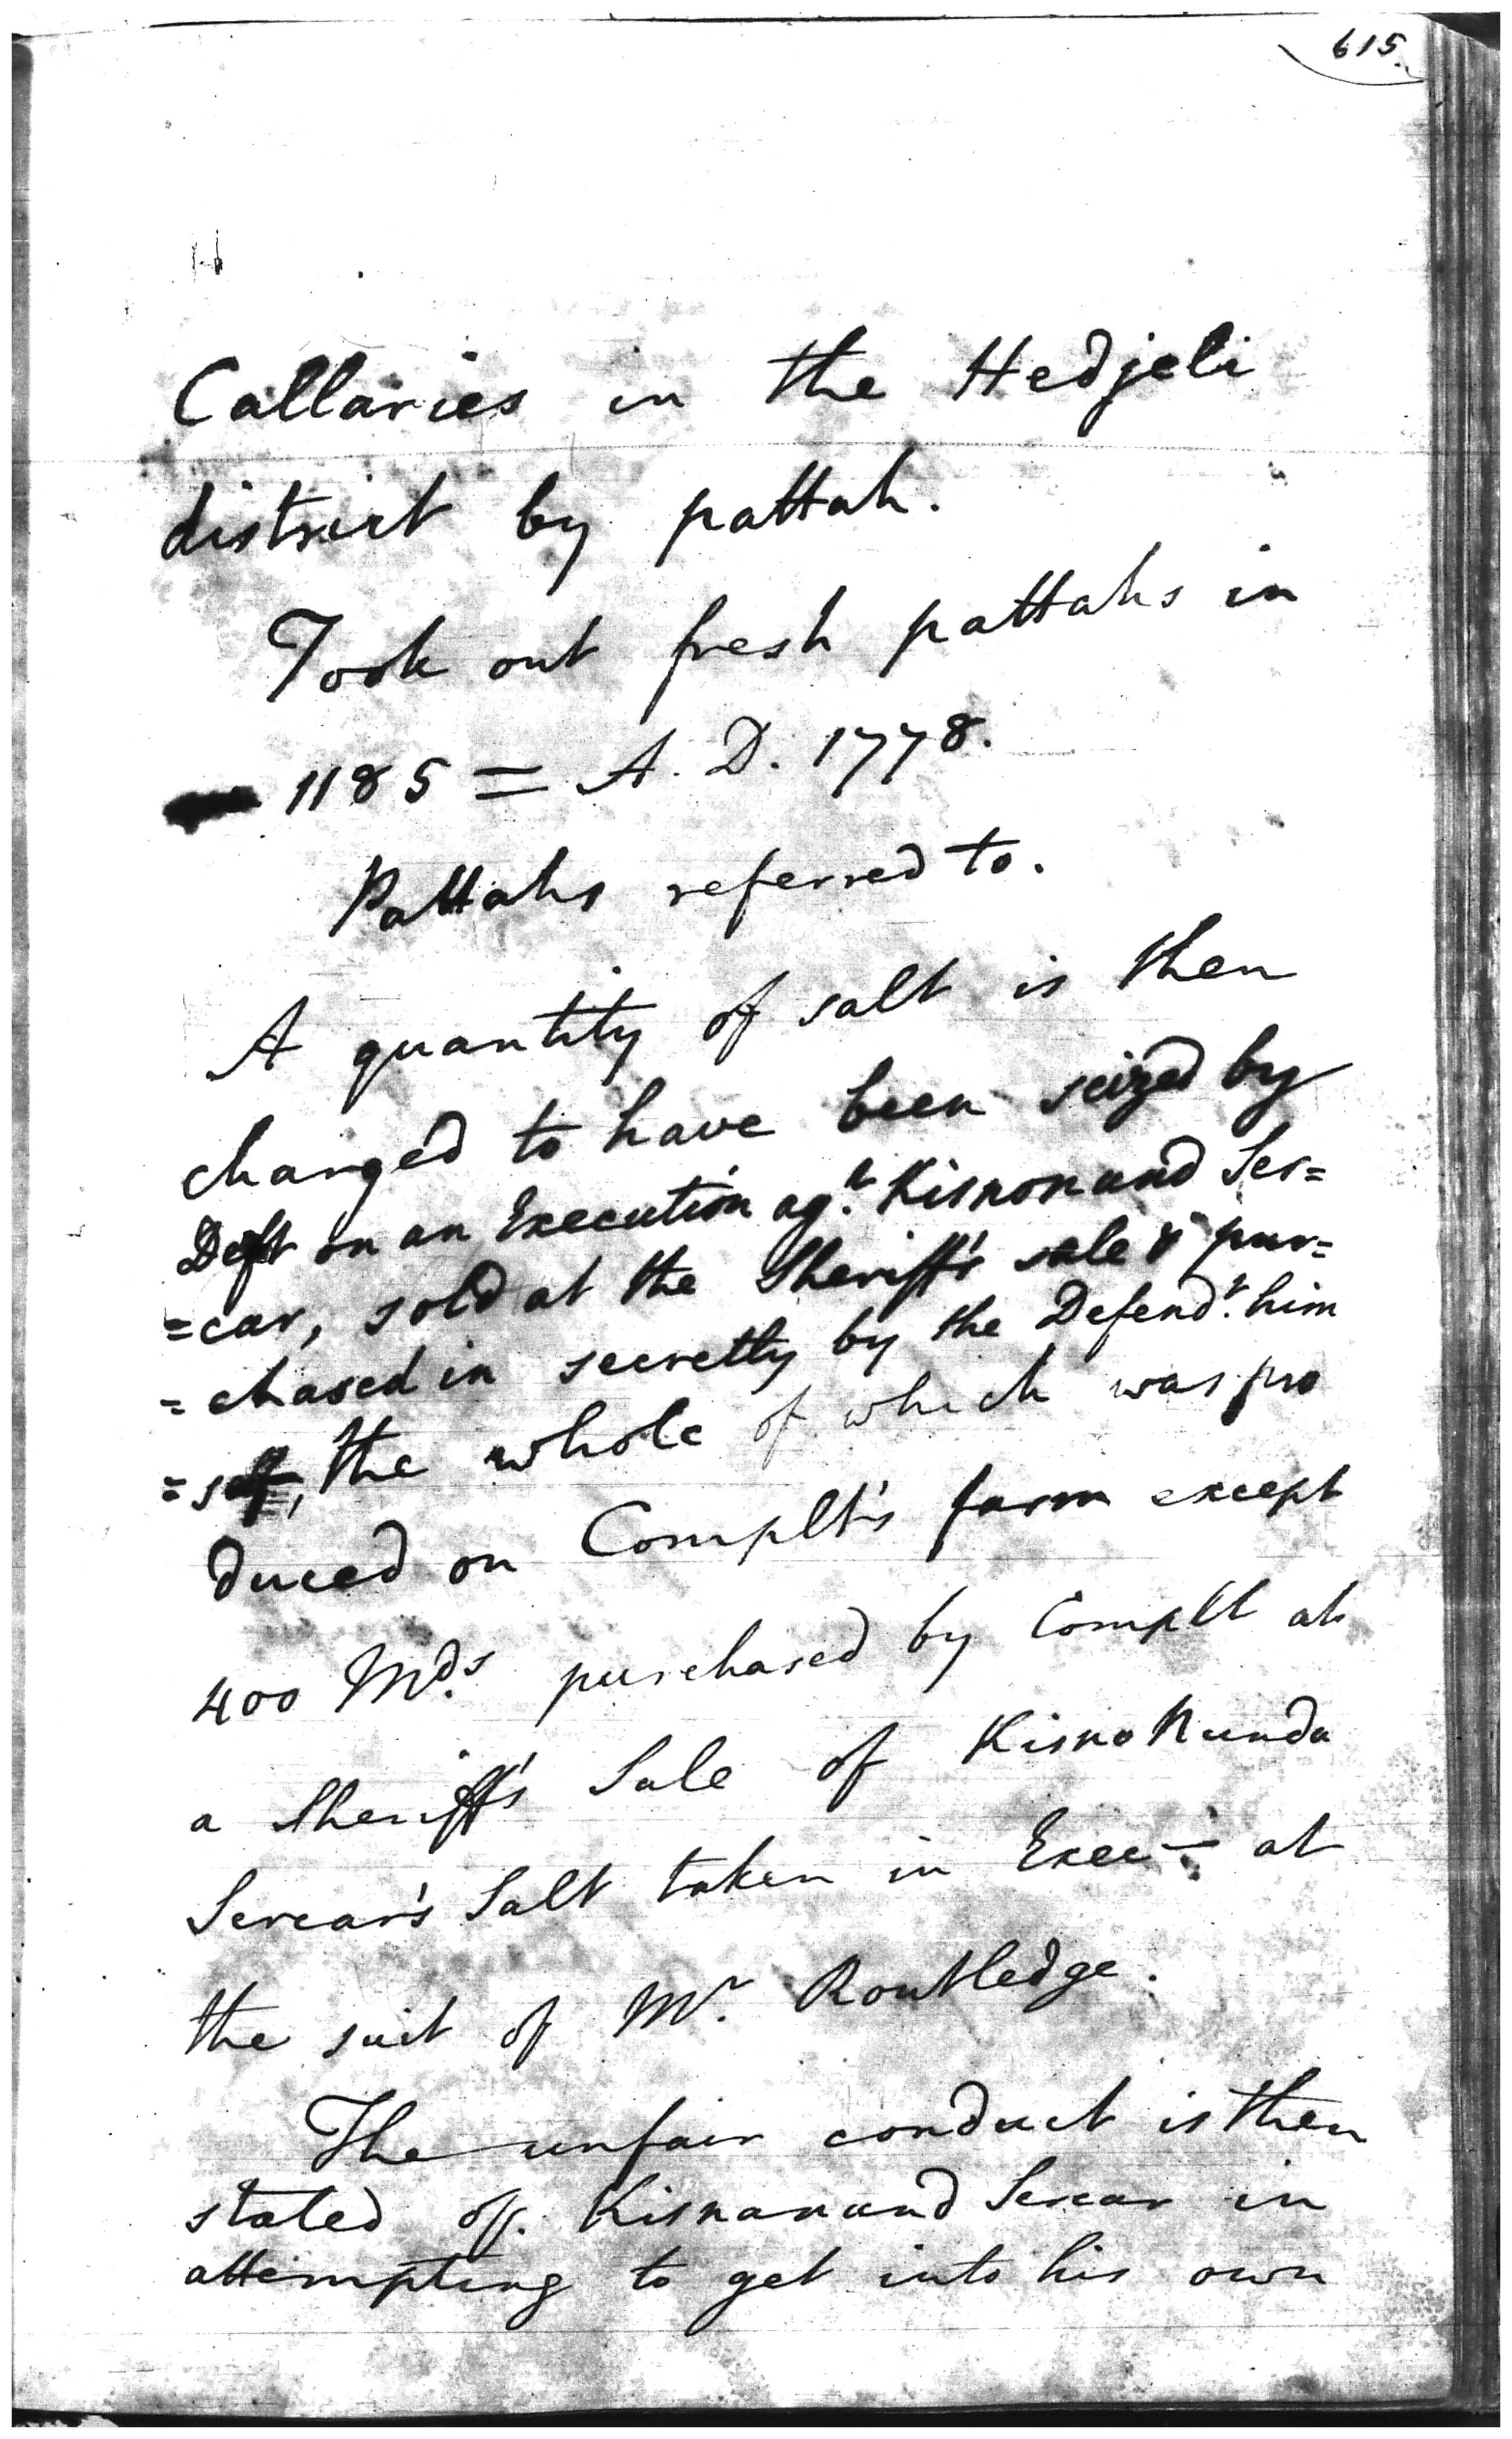 615.
Callaries in the Hedjeli
district by pattah.
Took out fresh pattahs in
1185 = A. D. 1778.
Pattahs referred to.
A quantity of salt is then
charged to have been seized by
Deft on an Execution agt. Kisnonund Ser=
=car, sold at the Sheriff's sale & pur=
=chased in secretly by the Defendt. him
=self, the whole of which was pro
duced on Complt's farm except
400 Mds. purchased by Complt at
a Sheriff's Sale of Kisno Nunda
Sercar's Salt taken in Exec— at
the suit of Mr. Routledge.
The unfair conduct is then
stated of Kisnanund Sercar in
attempting to get into his own